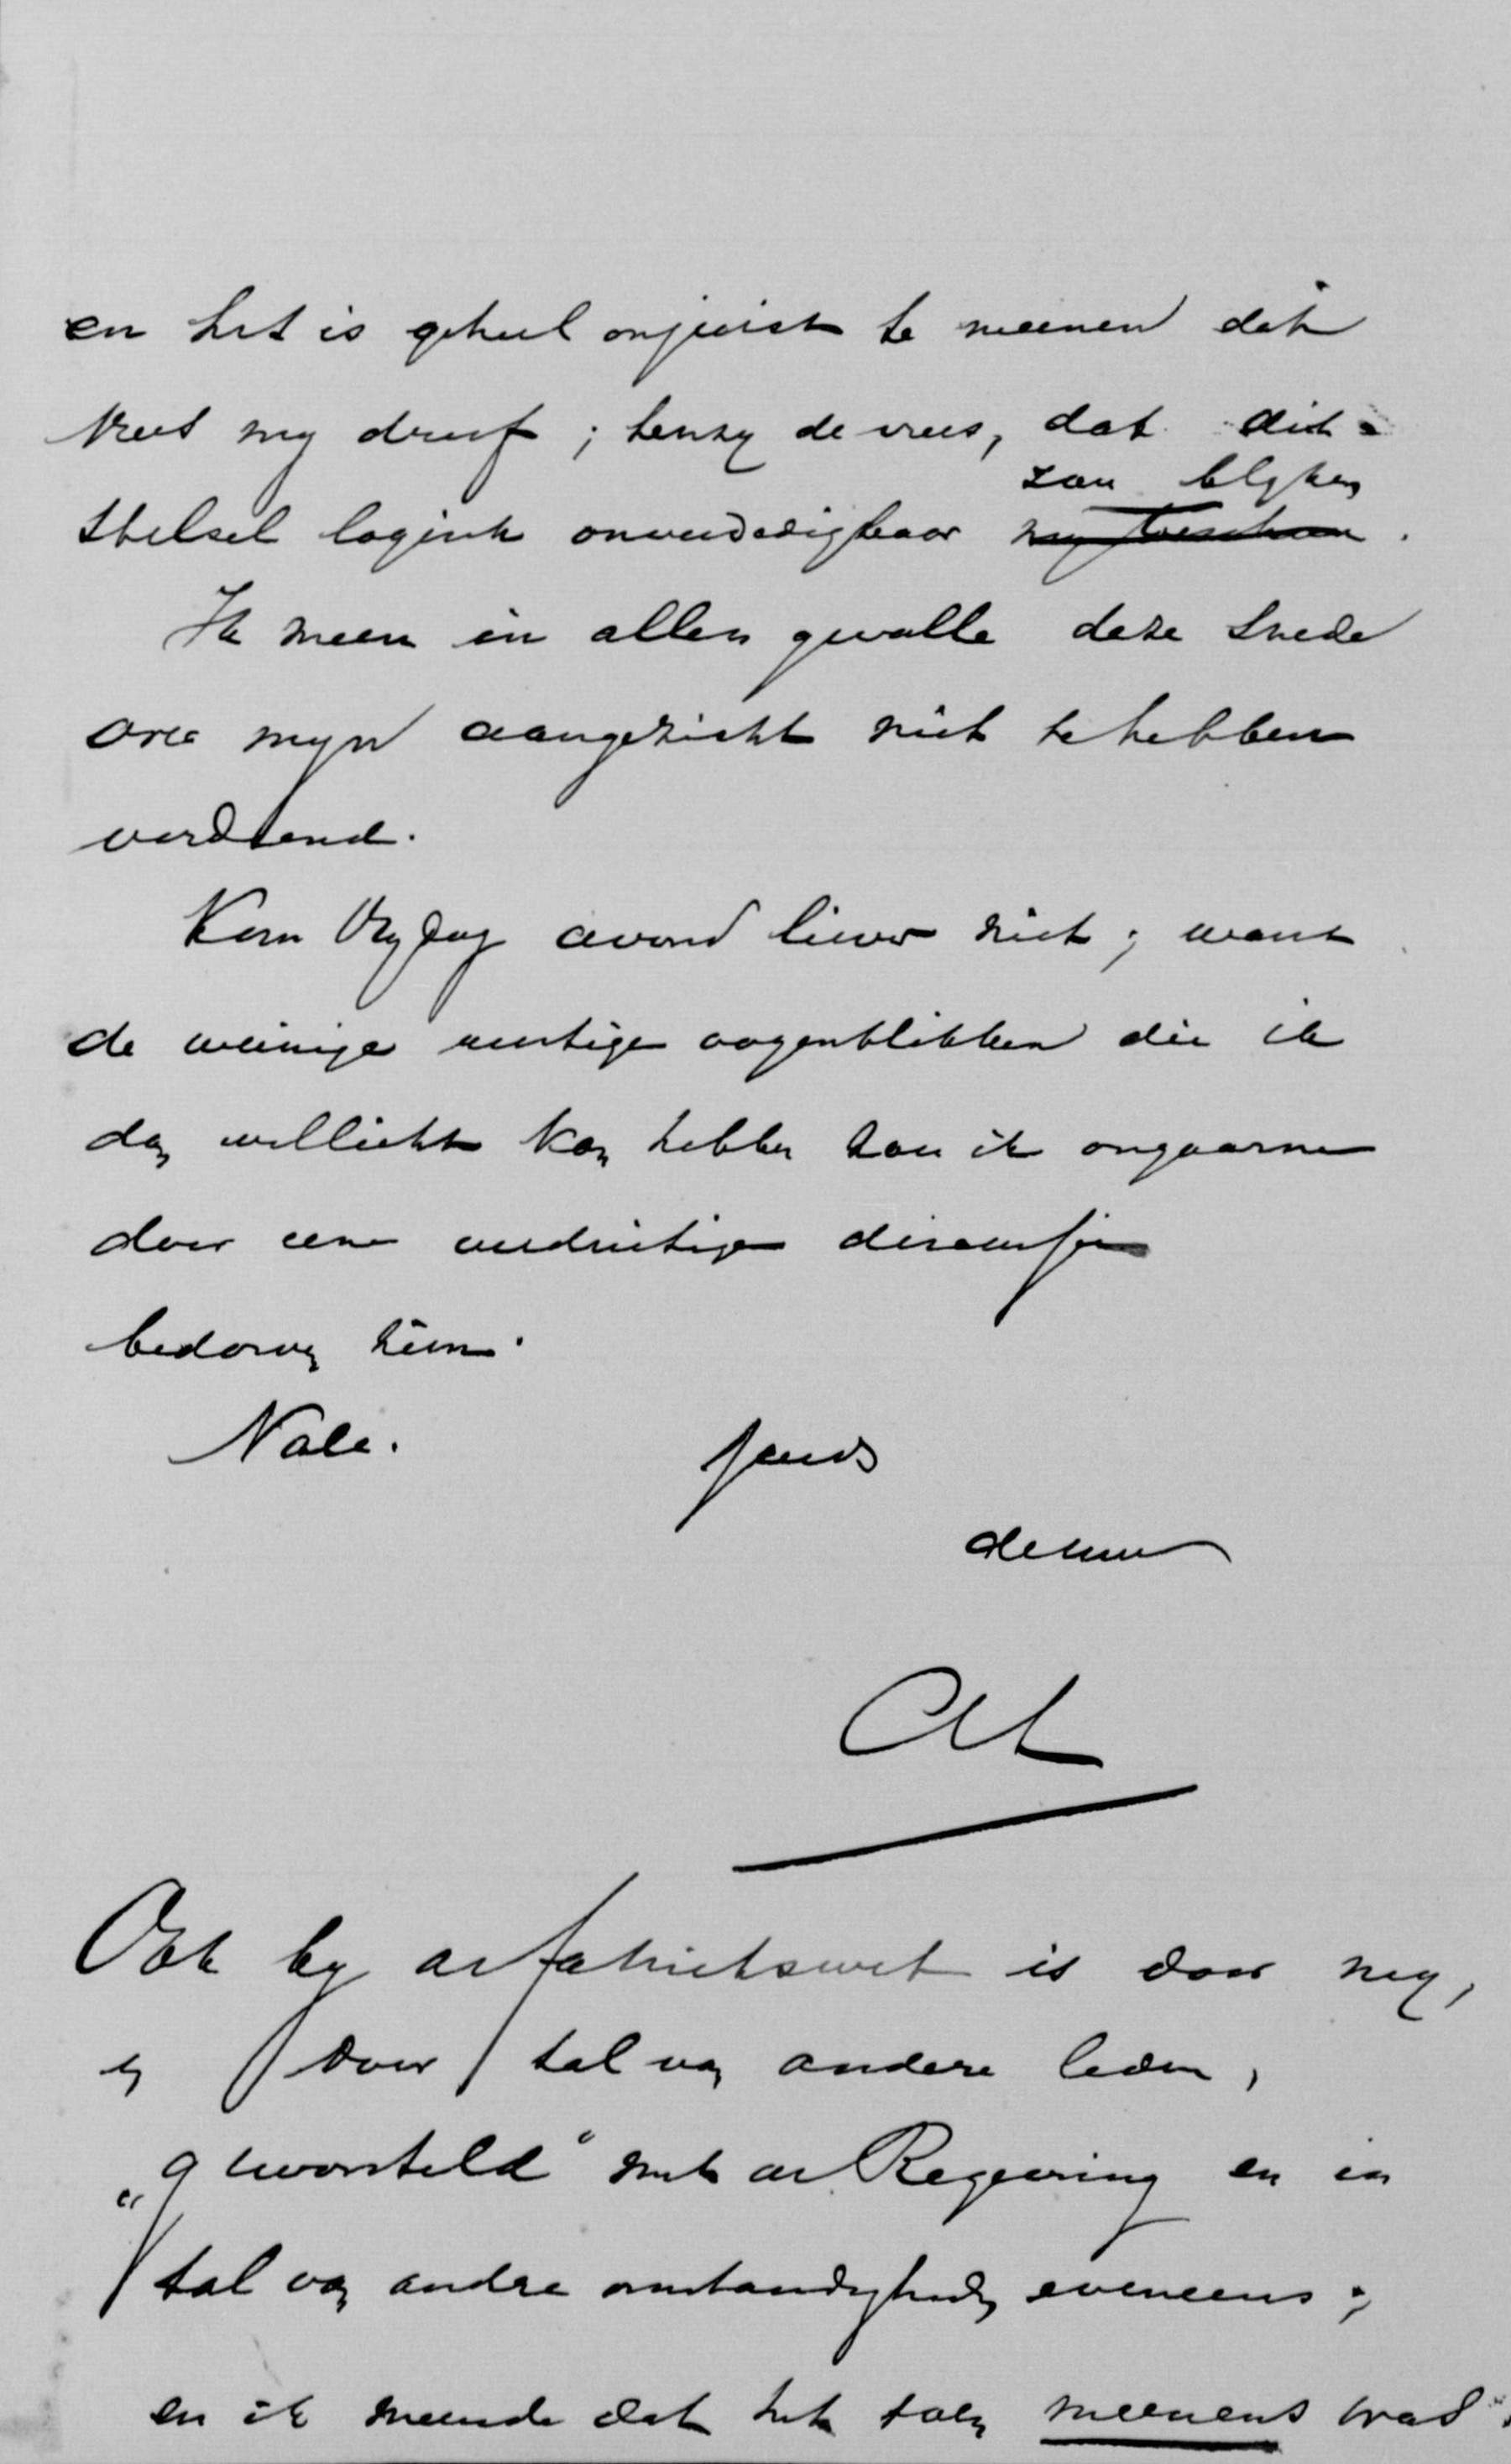 en het is geheel onjuist te meenen dat
vrees my dreef; tenzy de vrees, dat dit
zou blyken
stelsel logisch onverdedigbaar my toescheen.
Ik meen in allen gevalle deze snede
over myn aangezicht niet te hebben
verdiend.
Kom Vrydag avond liever niet; want
de weinige rustige oogenblikken die ik
dan wellicht kan hebben zou ik ongaarne
door eene verdrietige discussie
bedorven zien.
Vale.
de uwe
Ook by de fabriekswet is door my,
en door tal van andere leden,
„geworsteld" met de Regeering en in
tal van andere omstandigheden eveneens;
en ik meende dat het toen meenens was.